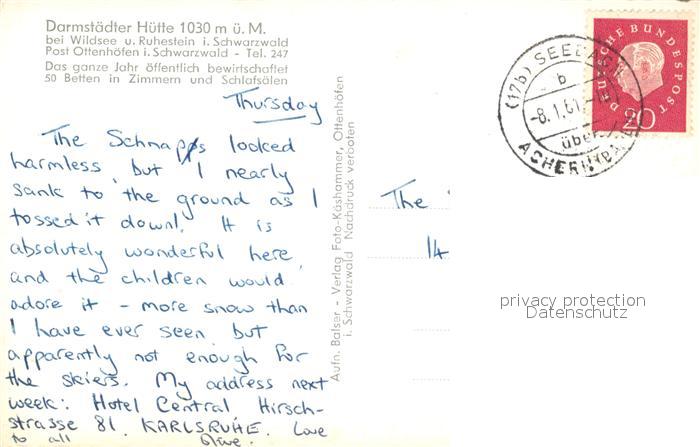 Darmstädter Hütte 1030 m ü. M.
bei Wildsee u. Ruhestein i. Schwarzwald
Post Ottenhöfen i. Schwarzwald - Tel. 247
Das ganze Jahr öffentlich bewirtschaftet
50 Betten in Zimmern und Schlafsälen
Thursday
The Schnapps looked
harmless, but I nearly
sank to the ground as I
tossed it down! It is
absolutely wonderful here
and the children would
adore it - more snow than
I have ever seen but
apparently not enough for
the skiers. My address next
week: Hotel Central Hirsch-
strasse 81. KARLSRUHE. Love
to all Olive.
Aufn. Balser - Verlag Foto-Käshammer, Ottenhöfen
i. Schwarzwald Nachdruck verboten
The
14
(17b) SEEBACH
b
-8.1.61.-
über
ACHERN (BADEN)
DEUTSCHE BUNDESPOST
20
privacy protection
Datenschutz